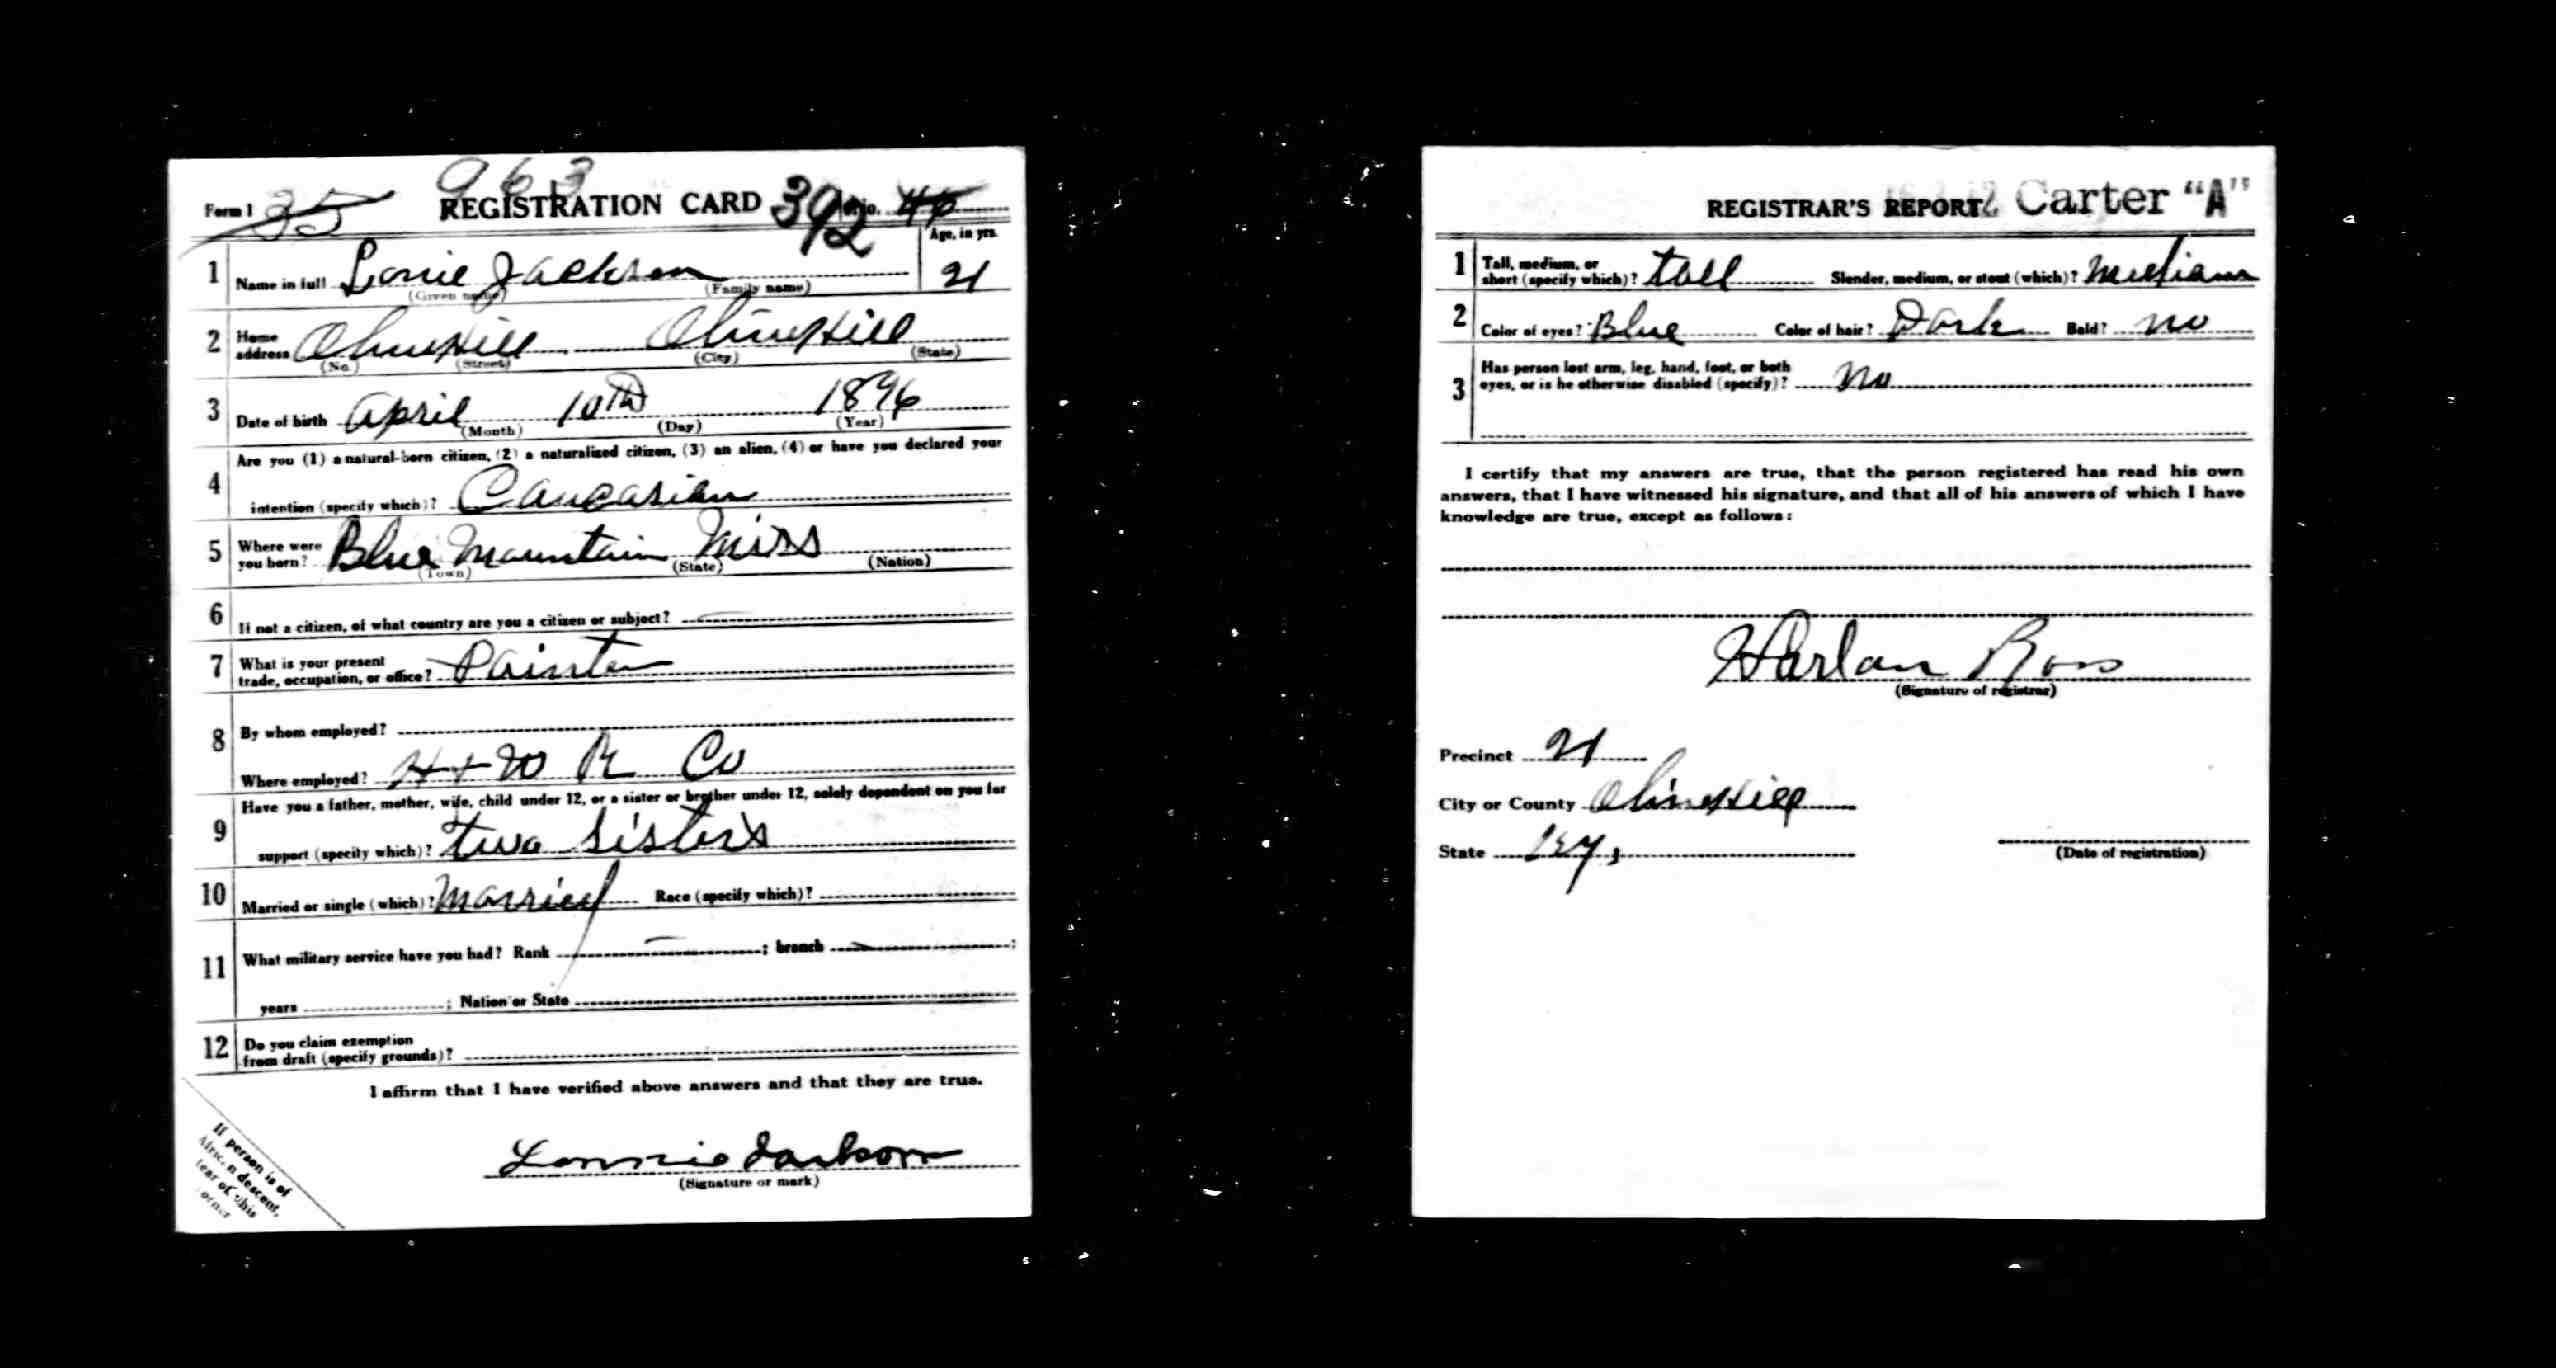 963
Form 1 35 REGISTRATION CARD 392 No. 46
1 Name in full Lonie Jackson Age, in yrs. 21
(Given name) (Family name)
2 Home address OliveHill OliveHill
(No.) (Street) (City) (State)
3 Date of birth April 10th 1896
(Month) (Day) (Year)
4 Are you (1) a natural-born citizen, (2) a naturalized citizen, (3) an alien, (4) or have you declared your
intention (specify which)? Caucasian
5 Where were you born? Blue Mountain Miss
(Town) (State) (Nation)
6 If not a citizen, of what country are you a citizen or subject? —
7 What is your present
trade, occupation, or office? Painter
8 By whom employed?
Where employed? H + W R Co
9 Have you a father, mother, wife, child under 12, or a sister or brother under 12, solely dependent on you for
support (specify which)? two sisters
10 Married or single (which)? Married Race (specify which)?
11 What military service have you had? Rank — ; branch — ;
years ; Nation or State
12 Do you claim exemption
from draft (specify grounds)?
I affirm that I have verified above answers and that they are true.
Lonnie Jackson
(Signature or mark)
If person is of
African descent,
tear off this
corner
REGISTRAR'S REPORT Carter "A"
1 Tall, medium, or
short (specify which)? tall Slender, medium, or stout (which)? Medium
2 Color of eyes? Blue Color of hair? Dark Bald? no
3 Has person lost arm, leg, hand, foot, or both
eyes, or is he otherwise disabled (specify)? no
I certify that my answers are true, that the person registered has read his own
answers, that I have witnessed his signature, and that all of his answers of which I have
knowledge are true, except as follows:
Harlan Ross
(Signature of registrar)
Precinct 21
City or County OliveHill
State Ky,
(Date of registration)